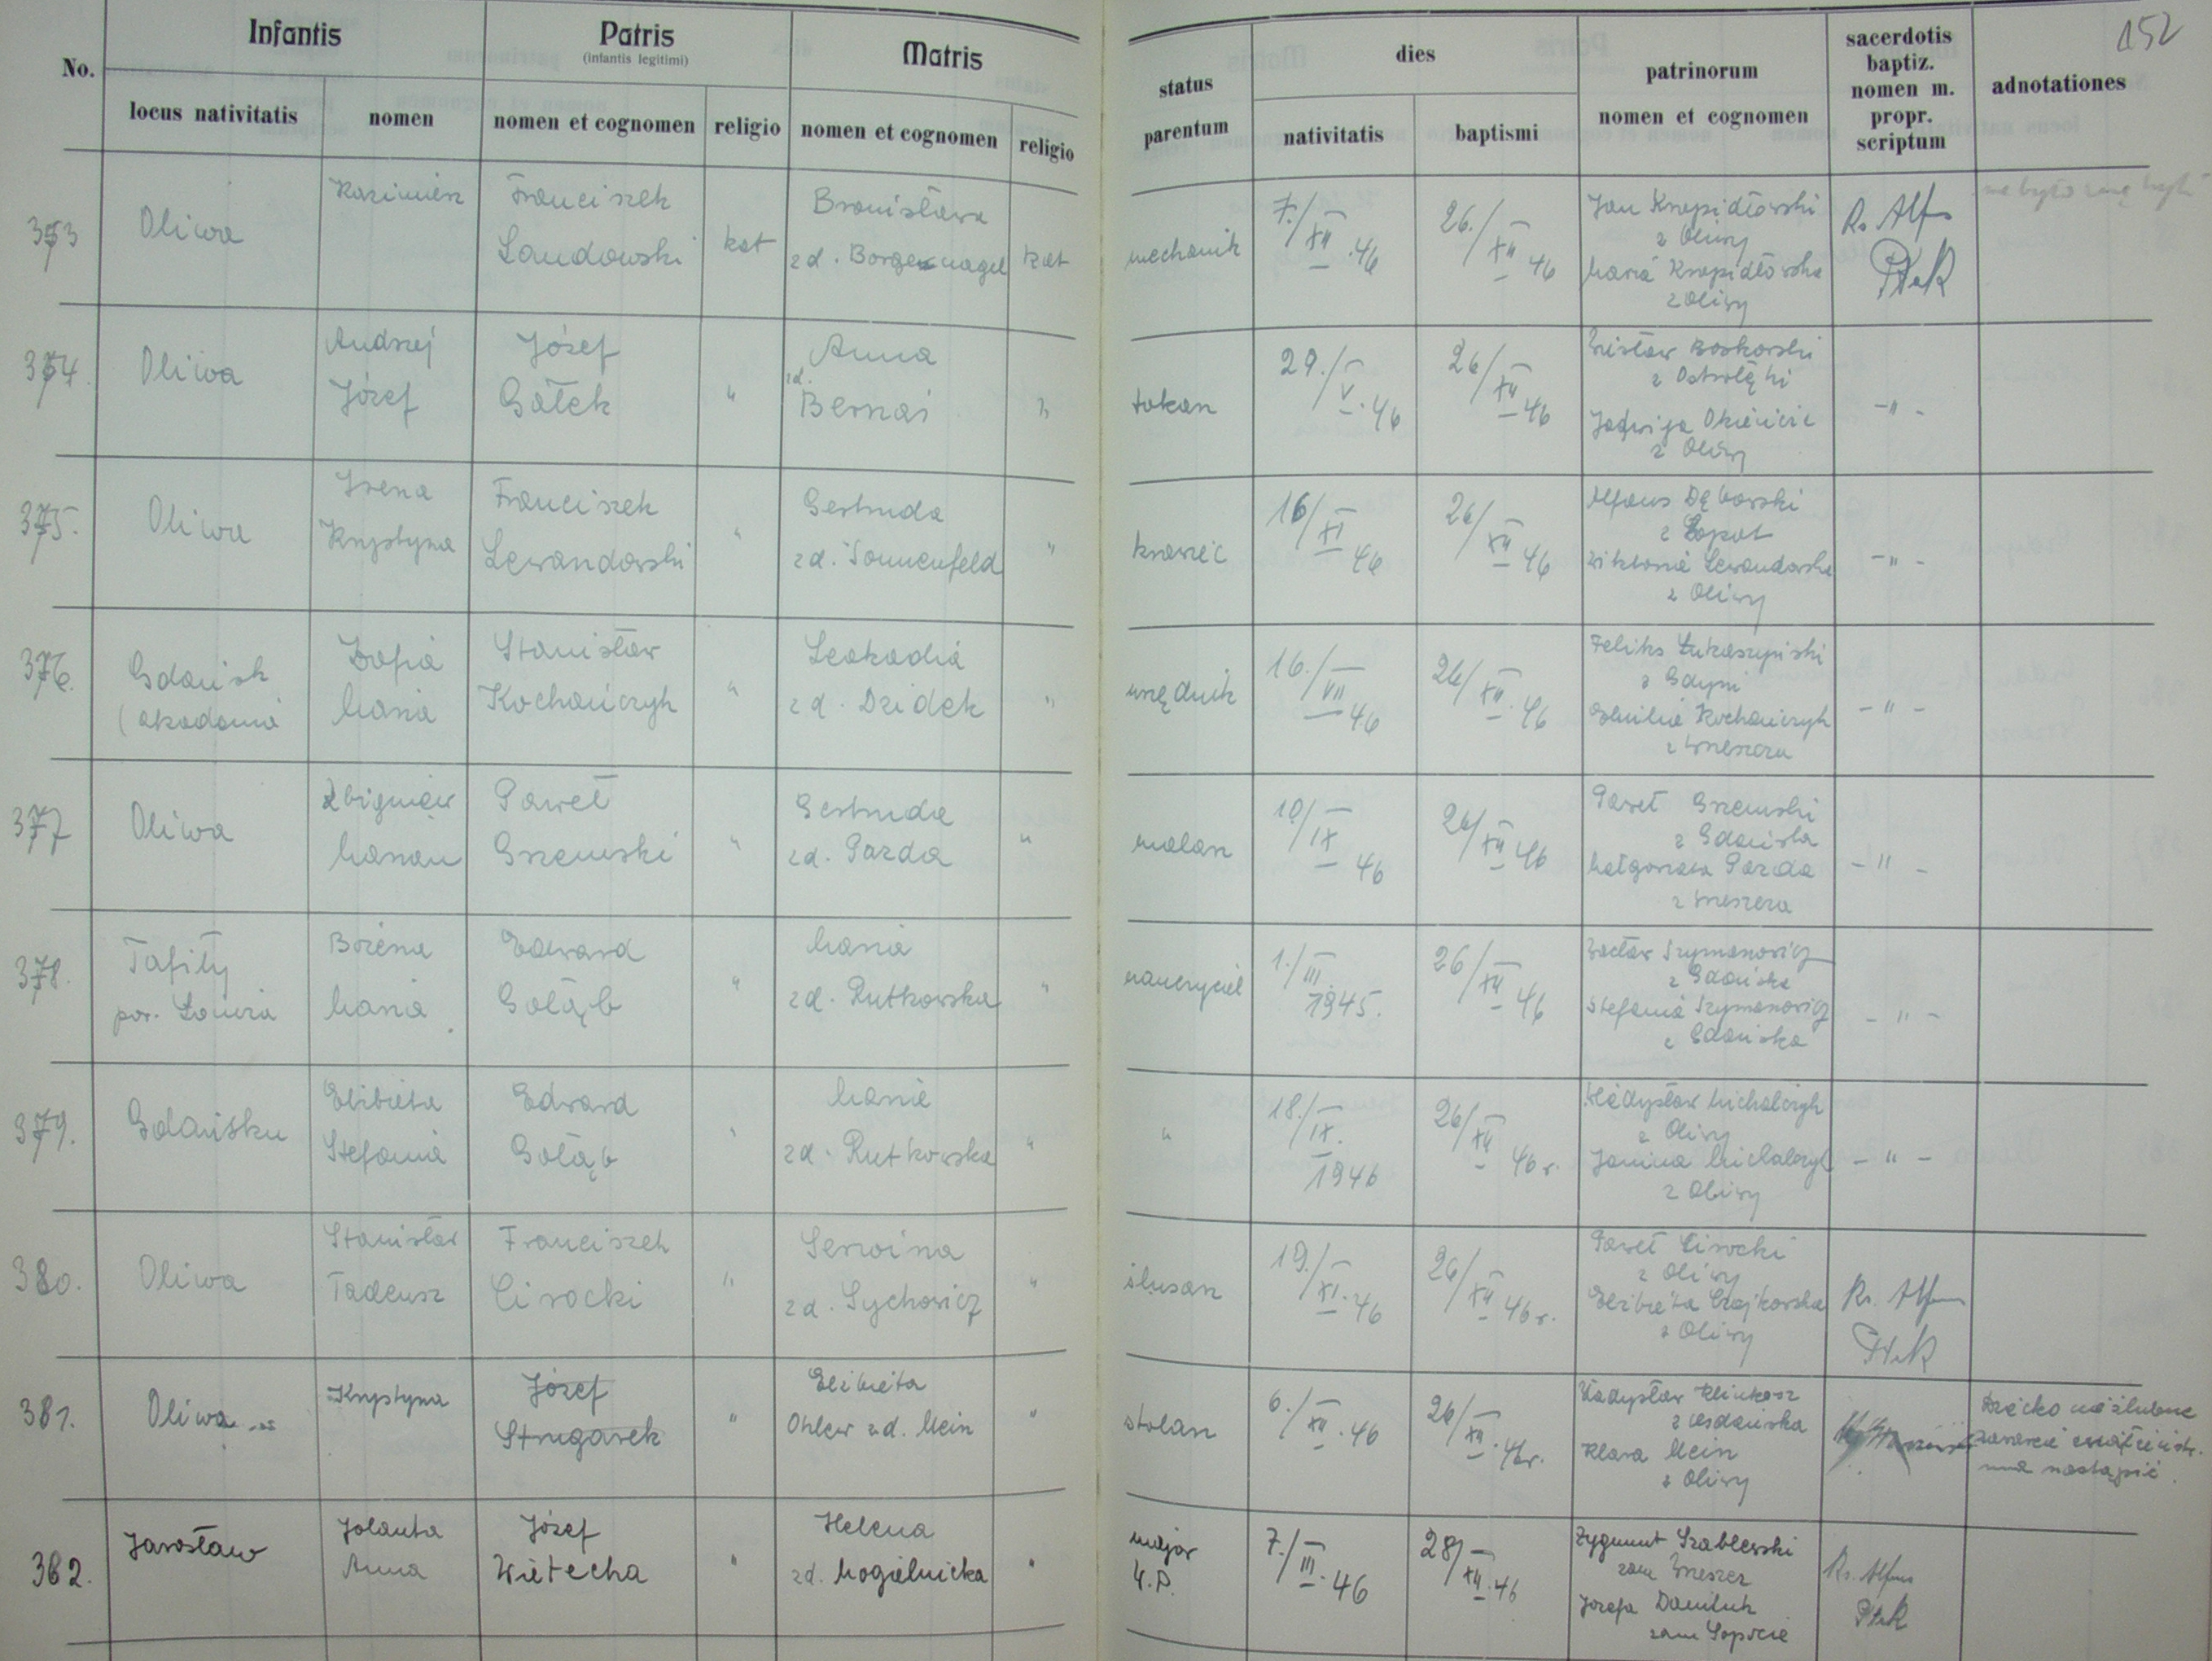 152
Infantis
Patris
(infantis legitimi)
Matris
No.
locus nativitatis
nomen
nomen et cognomen
religio
nomen et cognomen
religio
status
parentum
dies
nativitatis
baptismi
patrinorum
nomen et cognomen
sacerdotis
baptiz.
nomen m.
propr.
scriptum
adnotationes
373
Oliwa
Kazimierz
Franciszek
Landowski
kat
Bronisława
zd. Borgennagel
kat
mechanik
7./XII.46
26./XII 46
Jan Knopidłowski
z Oliwy
Maria Knopidłowska
z Oliwy
Ks Alfons
Ptak
374.
Oliwa
Andrzej
Józef
Józef
Gałek
"
Anna
zd.
"
tokarz
29./V.46
26/XII 46
z Ostrołęki
Jadwiga
z Oliwy
-"-
375.
Oliwa
Irena
Krystyna
Franciszek
Lewandowski
"
Gertruda
zd. Sonnenfeld
"
krawiec
16/XI 46
26/XII 46
Alfons Dębowski
z Sopot
Wiktoria Lewandowska
z Oliwy
-"-
376.
Gdańsk
(akademia
Zofia
Maria
Stanisław
Kochańczyk
"
Leokadia
zd. Dzidek
"
urzędnik
16./VII 46
26/XII.46
Feliks Łukaszyński
z Gdyni
Emilia Kochańczyk
z Wrzeszcza
-"-
377
Oliwa
Zbigniew
Marian
Paweł
Grzemski
"
Gertruda
zd. Parda
"
malarz
10/IX 46
26/XII 46
Paweł Grzemski
z Gdańska
Małgorzata Parda
z Wrzeszcza
-"-
378.
Tafiły
pow. Łomża
Bożena
Maria
Edward
Gołąb
"
Maria
zd. Rutkowska
"
nauczyciel
1./III.
1945.
26/XII 46
Wacław Szymanowicz
z Gdańska
Stefania Szymanowicz
z Gdańska
-"-
379.
Gdańsku
Elżbieta
Stefania
Edward
Gołąb
"
Maria
zd. Rutkowska
"
"
18./IX.
1946
26/XII 46 r.
Władysław Michalczyk
z Oliwy
Janina Michalczyk
z Oliwy
-"-
380.
Oliwa
Stanisław
Tadeusz
Franciszek
Cirocki
"
Serwina
zd. Sychowicz
"
ślusarz
19./XI.46
26/XII 46 r.
Paweł Cirocki
z Oliwy
Elżbieta Czajkowska
z Oliwy
Ks. Alfons
Ptak
381.
Oliwa
Krystyna
Józef
Strugarek
"
Elżbieta
Ohler zd. Mein
"
stolarz
6./XII.46
26/XII.46r.
Władysław Klinkosz
z Gdańska
Klara Mein
z Oliwy
Dziecko nieślubne
zawarcie małżeństw.
ma nastąpić.
382.
Jarosław
Jolanta
Anna
Józef
Wietecha
"
Helena
zd. Mogielnicka
"
major
W.P.
7./III.46
28/XII.46
Zygmunt Szablewski
zam Wrzeszcz
Józefa Daniluk
zam Sopocie
Ks. Alfons
Ptak